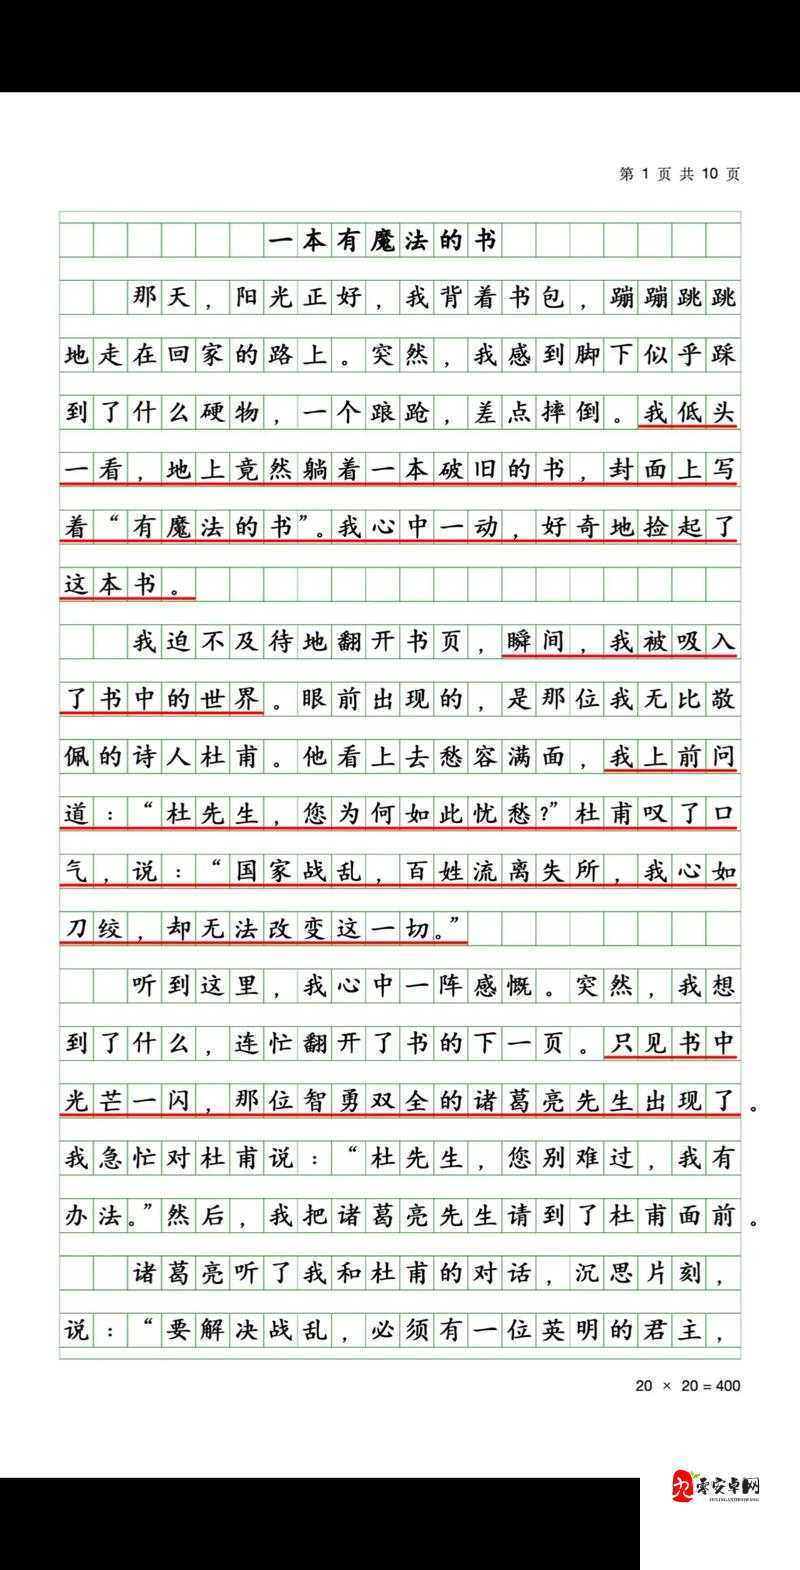 第 1 页 共 10 页
一本有魔法的书
那天，阳光正好，我背着书包，蹦蹦跳跳
地走在回家的路上。突然，我感到脚下似乎踩
到了什么硬物，一个踉跄，差点摔倒。我低头
一看，地上竟然躺着一本破旧的书，封面上写
着“有魔法的书”。我心中一动，好奇地捡起了
这本书。
我迫不及待地翻开书页，瞬间，我被吸入
了书中的世界。眼前出现的，是那位我无比敬
佩的诗人杜甫。他看上去愁容满面，我上前问
道：“杜先生，您为何如此忧愁?”杜甫叹了口
气，说：“国家战乱，百姓流离失所，我心如
刀绞，却无法改变这一切。”
听到这里，我心中一阵感慨。突然，我想
到了什么，连忙翻开了书的下一页。只见书中
光芒一闪，那位智勇双全的诸葛亮先生出现了。
我急忙对杜甫说：“杜先生，您别难过，我有
办法。”然后，我把诸葛亮先生请到了杜甫面前。
诸葛亮听了我和杜甫的对话，沉思片刻，
说：“要解决战乱，必须有一位英明的君主，
20 × 20 = 400
九零安卓网